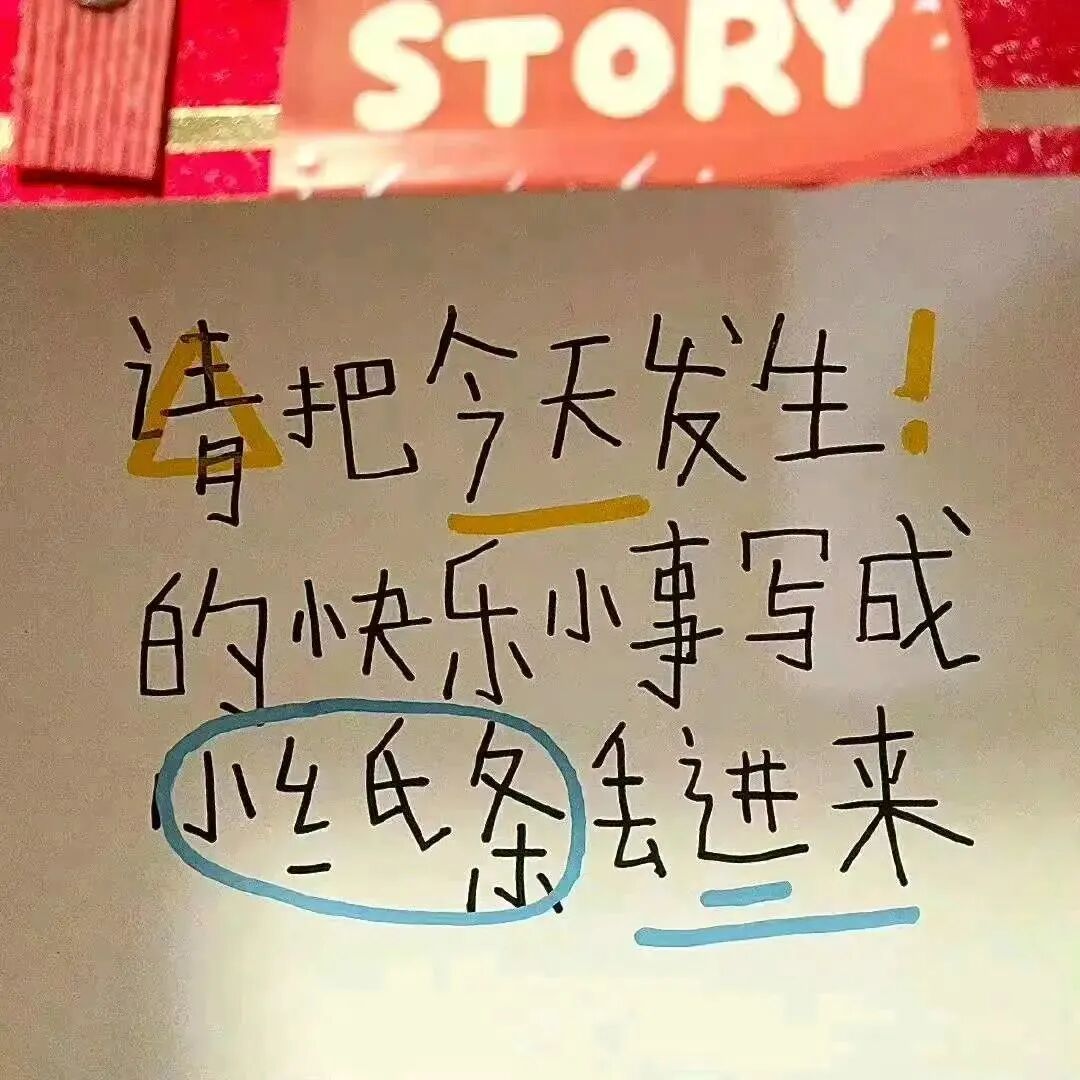 STORY
请把今天发生!
的快乐小事写成
小纸条丢进来